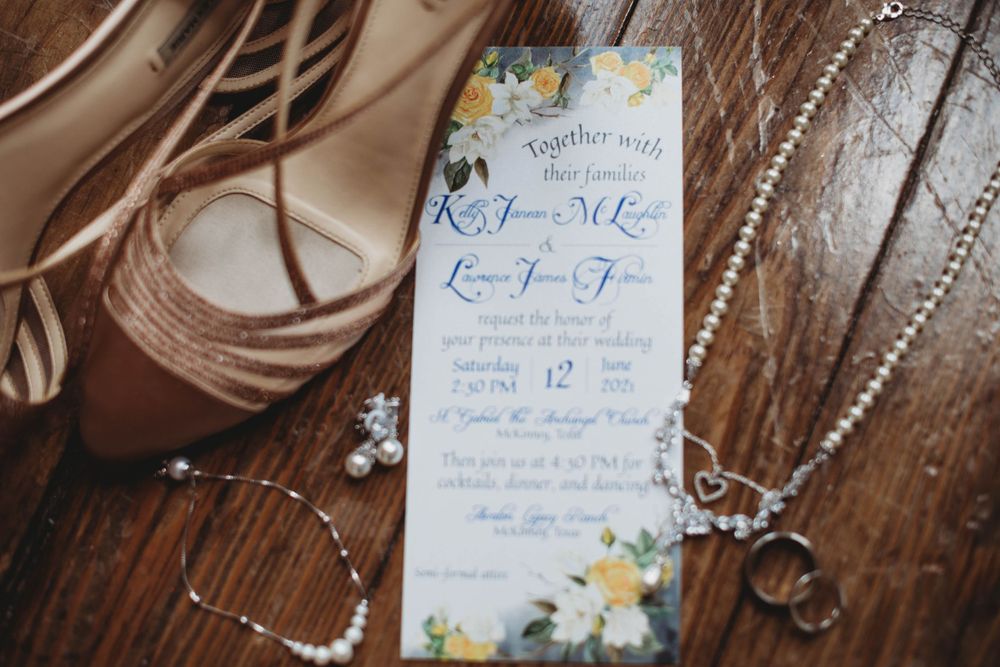 Together with
their families
Kelly Janean McLaughlin
&
Lawrence James Firmin
request the honor of
your presence at their wedding
Saturday
2:30 PM
12
June
2021
St. Gabriel the Archangel Church
McKinney, Texas
Then join us at 4:30 PM for
cocktails, dinner, and dancing
Legacy Ranch
McKinney, Texas
Semi-formal attire